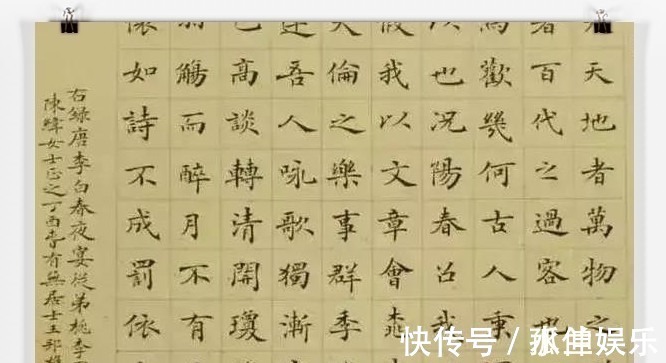 天地者萬物之
者百代之過客也
為歡幾何古人秉
也況陽春召
假我以文章會桃
天倫之樂事群季
吾人咏歌獨漸
已高談轉清開瓊
羽觴而醉月不有
懷如詩不成罰依
右錄唐李白春夜宴從弟桃李
陳緯女士正之丁酉春有無居士王邦
快传号/
娱乐